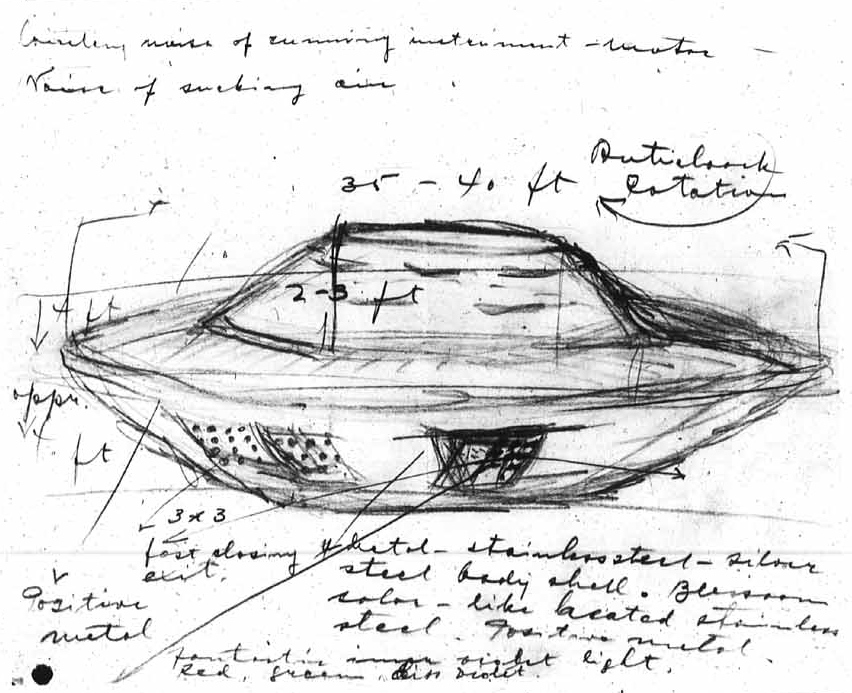 noise of running instrument - motor -
Noise of sucking air
Anticlock
35 - 40 ft
rotation
2-3 ft
4 ft
appr.
4 ft
3x3
fast closing metal - stainless steel - silver
exit.
steel body shell.
Positive
color - like heated stainless
metal
steel. Positive metal.
fantastic inner violet light.
red, green, violet.